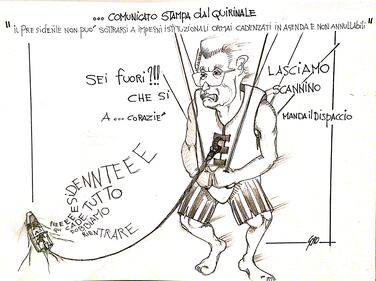 ... COMUNICATO STAMPA dAL QUIRINALE
"IL PRESIDENTE NON PUO' SOTTRARSI A IMPEGNI ISTITUZIONALI ORMAI CADENZATI IN AGENDA E NON ANNULLABILI"
SEI FUORI?!!!
CHE SI
A ... CORAZIE'
LASCIAMO
SCANNINO
MANDA il DISPACCIO
ESIDENNTEEE
CADE TUTTO
DOBBIAMO
RIENTRARE